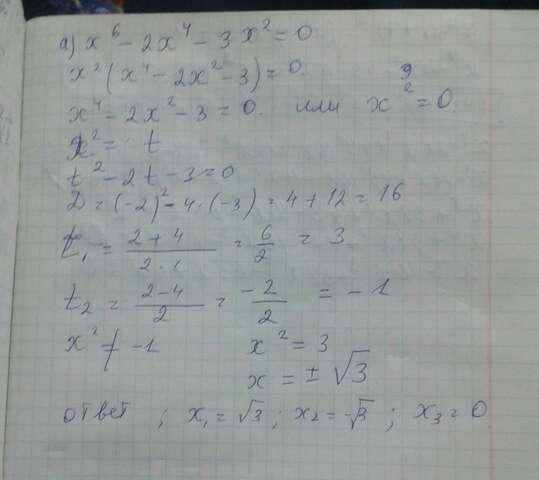 а) x⁶ - 2x⁴ - 3x² = 0
x² (x⁴ - 2x² - 3) = 0.
x⁴ - 2x² - 3 = 0. или x² = 0.
x² = t
t² - 2t - 3 = 0
D = (-2)² - 4·(-3) = 4 + 12 = 16
t₁ = (2+4)/(2·1) = 6/2 = 3
t₂ = (2-4)/2 = -2/2 = -1
x² ≠ -1 x² = 3
x = ± √3
ответ ; x₁ = √3 ; x₂ = -√3 ; x₃ = 0